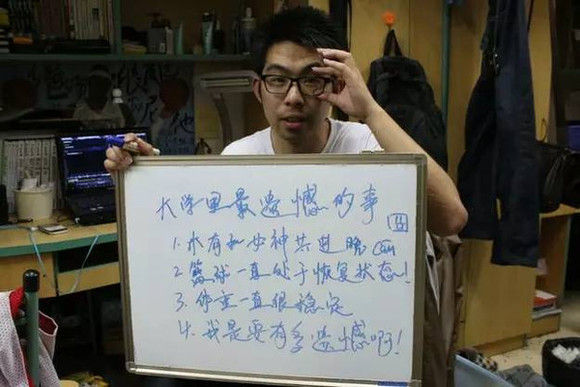 大学里最遗憾的事
1. 没有和女神共进晚can
2. 篮球一直处于恢复状态!
3. 体重一直很稳定
4. 我是要有多遗憾啊!